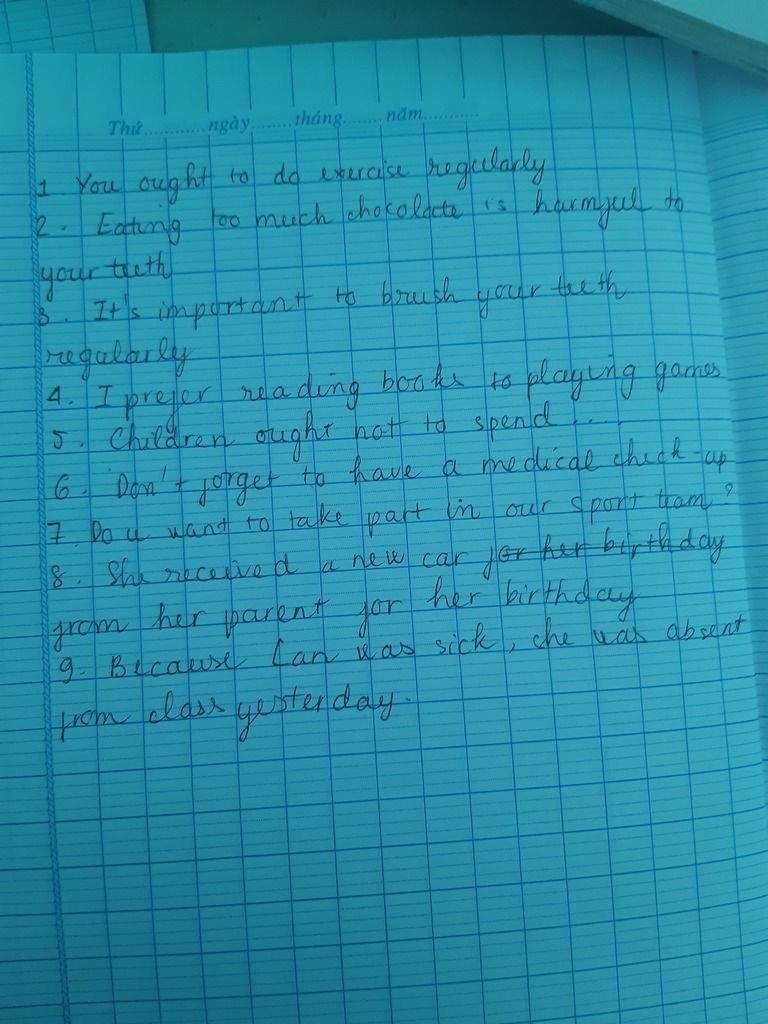 Thứ............ngày........tháng........năm...........
1 You ought to do exercise regularly
2. Eating too much chokolate is harmful to
your teeth
3. It's important to brush your teeth
regularly
4. I prefer reading books to playing games
5. Children ought not to spend ....
6. Don't forget to have a medical check-up
7. Do u want to take part in our sport team?
8. She received a new car for her birthday
from her parent for her birthday
9. Because Lan was sick, che was absent
from class yesterday.